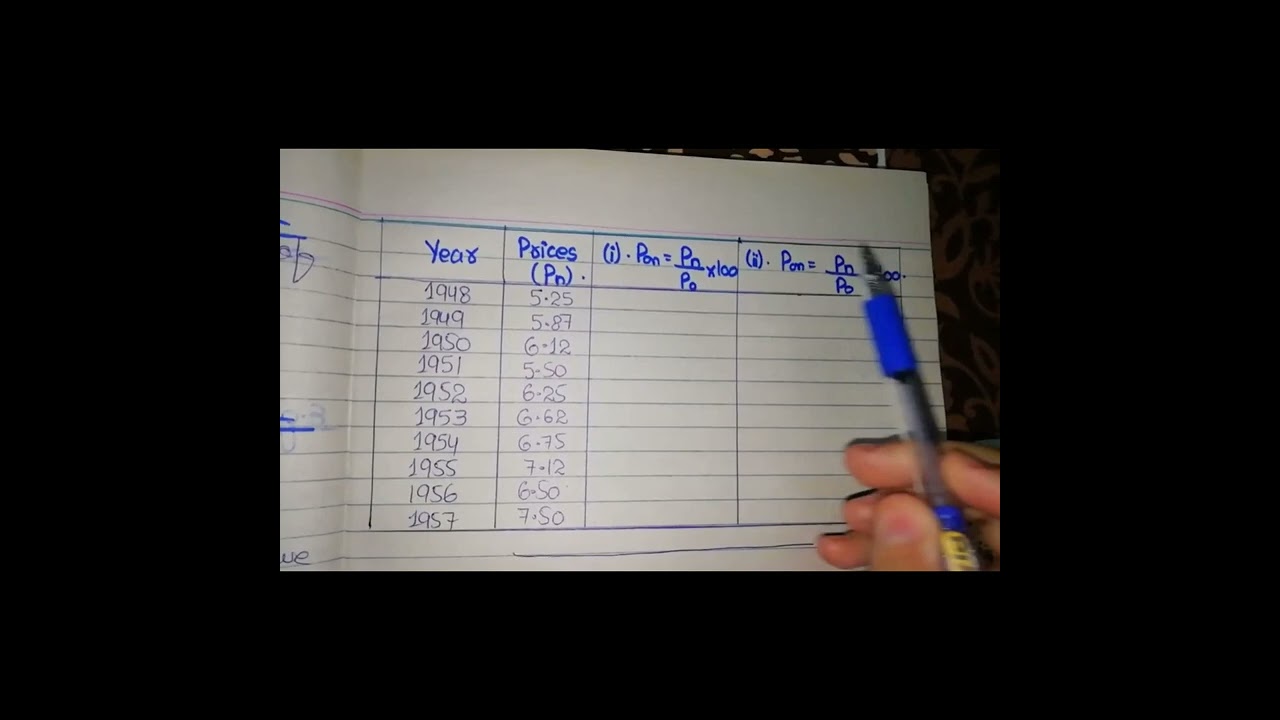 Year Prices (i). Pon = Pn/Po x100 (ii). Pon = Pn/Po
(Pn).
1948 5.25
1949 5.87
1950 6.12
1951 5.50
1952 6.25
1953 6.62
1954 6.75
1955 7.12
1956 6.50
1957 7.50
ue